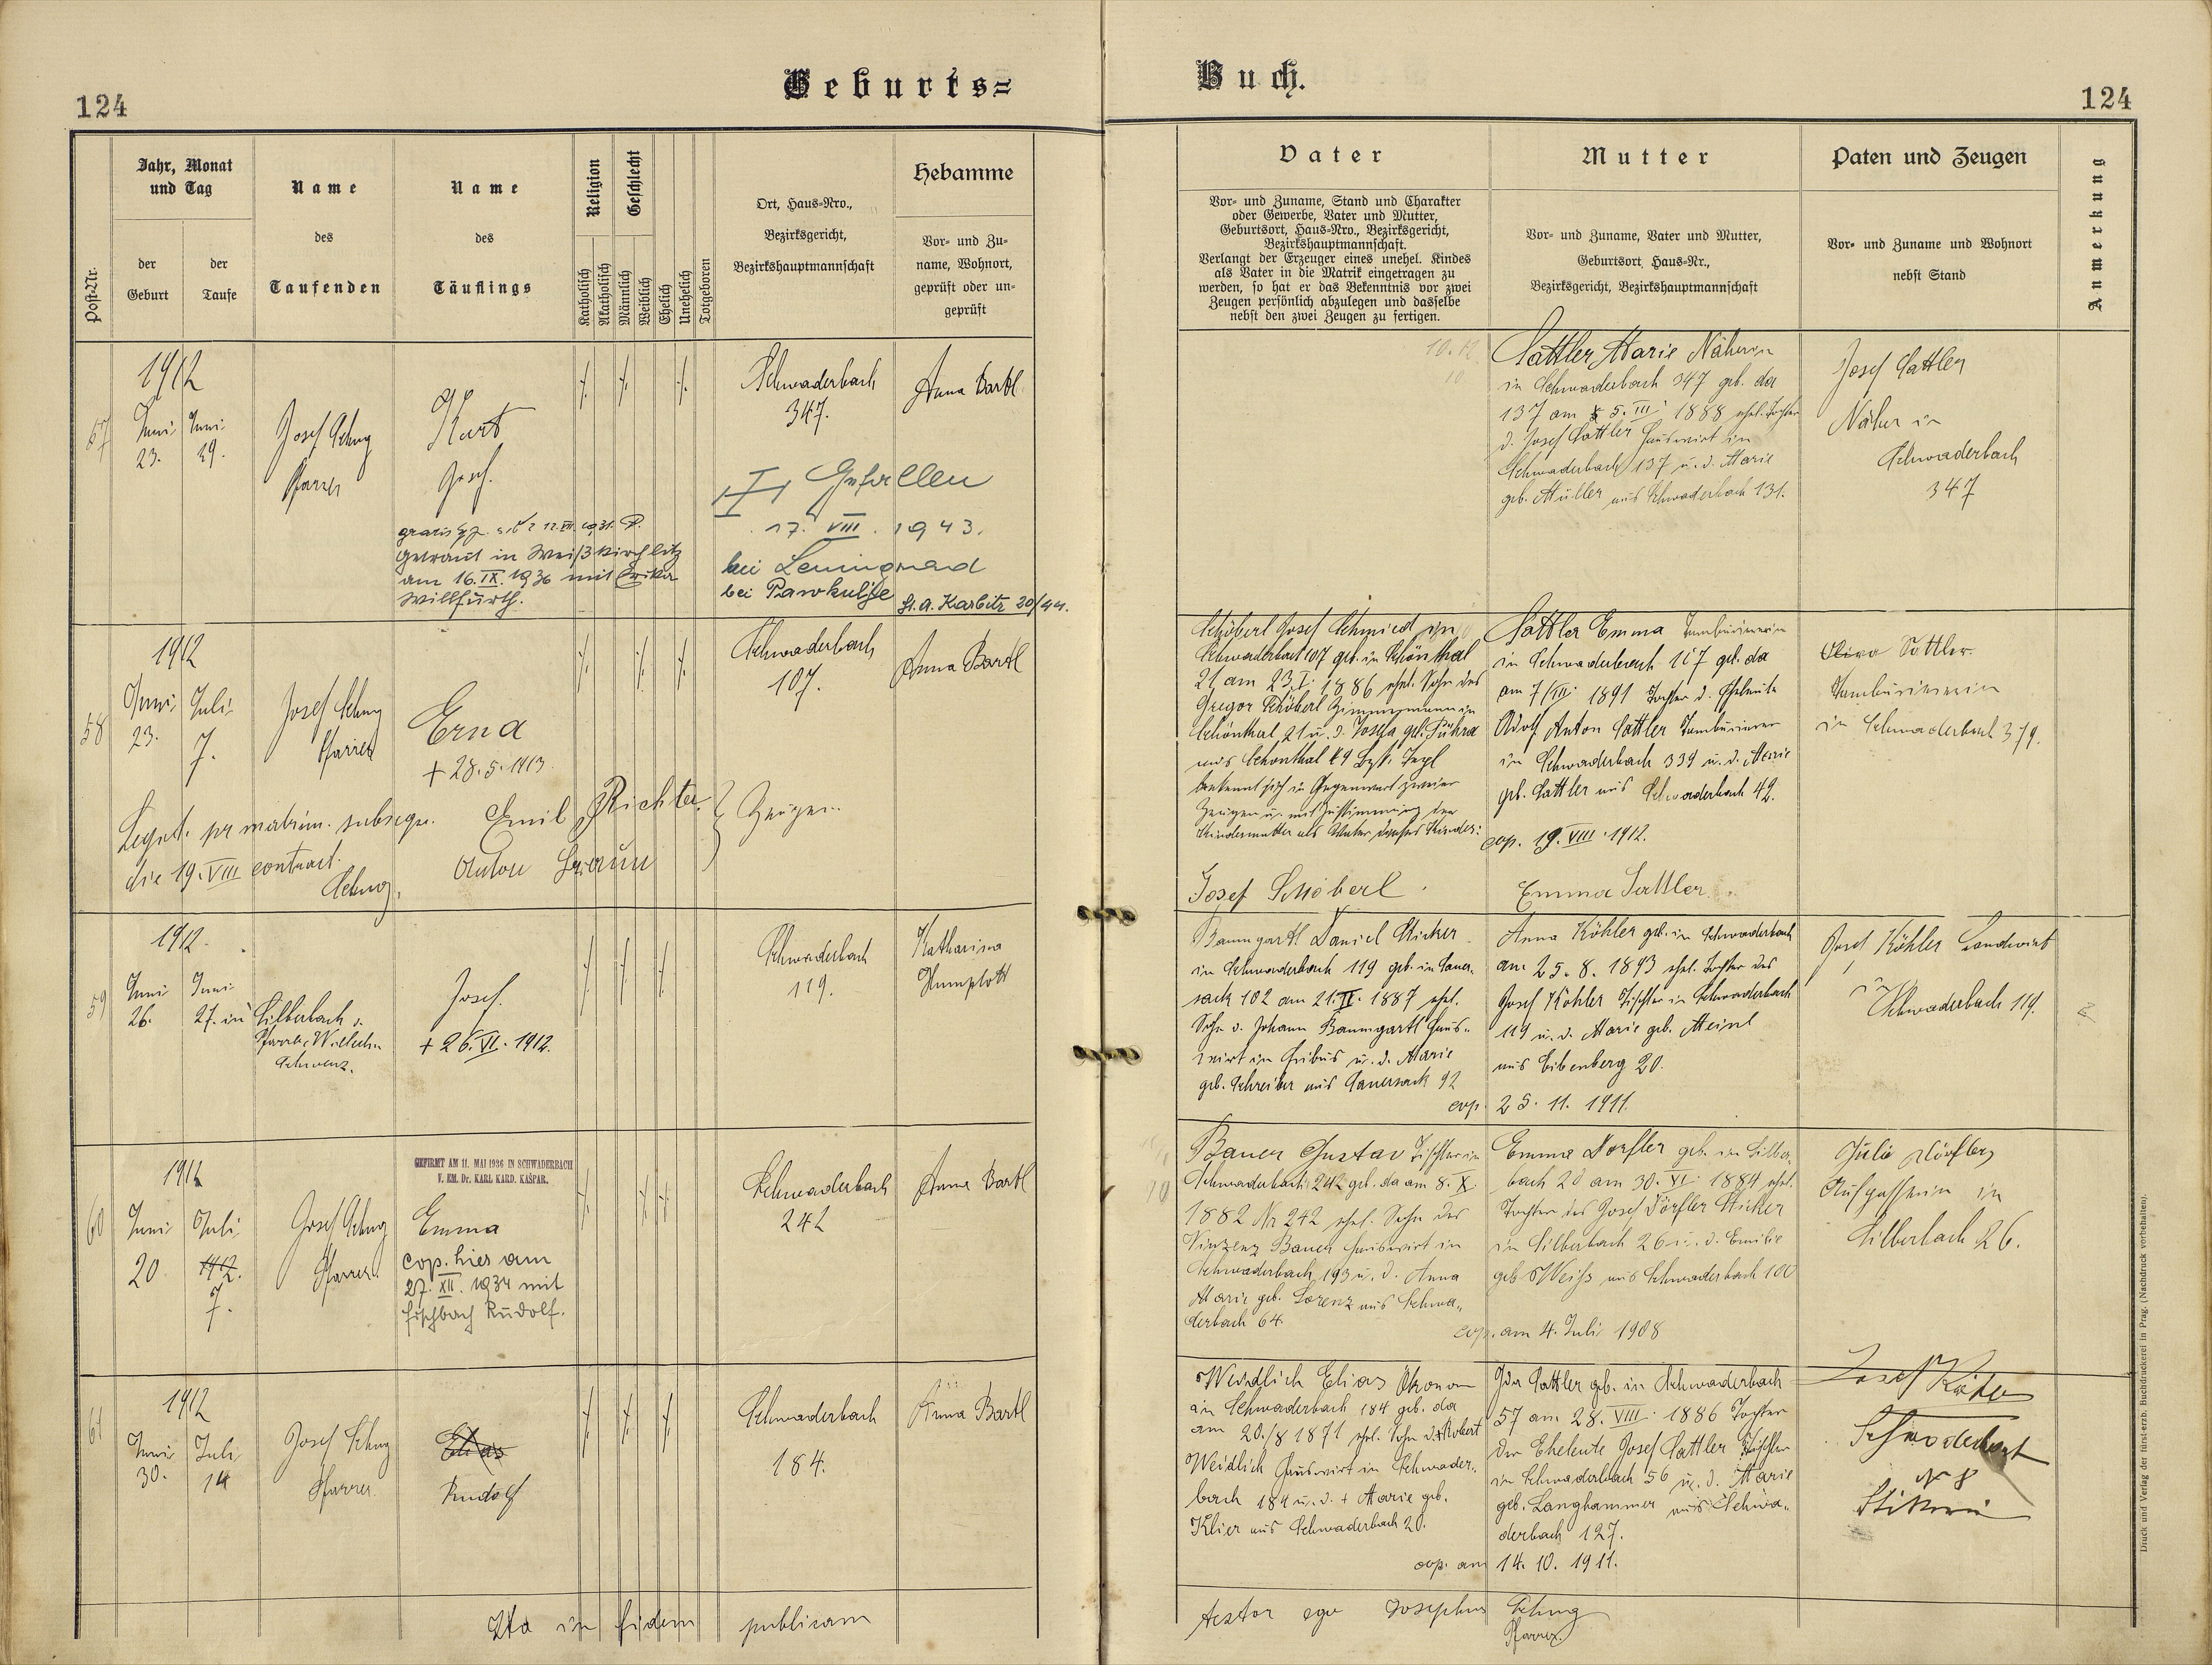 124
Geburts=
Buch.
124
Post-Nr.
Jahr, Monat
und Tag
der
Geburt
der
Taufe
Name
des
Taufenden
Name
des
Täuflings
Religion
Katholisch
Akatholisch
Geschlecht
Männlich
Weiblich
Ehelich
Unehelich
Totgeboren
Ort, Haus-Nro.,
Bezirksgericht,
Bezirkshauptmannschaft
Hebamme
Vor- und Zu-
name, Wohnort,
geprüft oder un-
geprüft
Vater
Vor- und Zuname, Stand und Charakter
oder Gewerbe, Vater und Mutter,
Geburtsort, Haus-Nro., Bezirksgericht,
Bezirkshauptmannschaft.
Verlangt der Erzeuger eines unehel. Kindes
als Vater in die Matrik eingetragen zu
werden, so hat er das Bekenntnis vor zwei
Zeugen persönlich abzulegen und dasselbe
nebst den zwei Zeugen zu fertigen.
Mutter
Vor- und Zuname, Vater und Mutter,
Geburtsort, Haus-Nr.,
Bezirksgericht, Bezirkshauptmannschaft
Paten und Zeugen
Vor- und Zuname und Wohnort
nebst Stand
Anmerkung
57
1912
Juni
23.
Juni
29.
Josef
Pfarrer
Kurt
Josef.
getraut in Weißkirchlitz
am 16.IX.1936 mit Erika
Willfurth.
Schwaderbach
347.
Anna Bartl
Gefallen
17. VIII. 1943.
bei Leningrad
bei
St.A. Karbitz 30/44.
Sattler Marie Näherin
in Schwaderbach 347 geb. da
137 am 5. III. 1888 ehel. Tochter
d. Josef Sattler Hauswirt in
Schwaderbach 137 u. d. Marie
geb. Müller aus Schwaderbach 131.
Josef Sattler
Näher in
Schwaderbach
347
58
1912
Juni
23.
Juli
7.
Josef
Pfarrer
Erna
+ 28.5.1913
Schwaderbach
107.
Anna Bartl
Legit. pr matrim. subsequ.
die 19. VIII contract.
Emil Richter
Anton Braun
Zeugen
Schöberl Josef Schmied in
Schwaderbach 107 geb. in Schönthal
21 am 23.I. 1886 ehel. Sohn des
Gregor Schöberl Zimmermann in
Schönthal 21 u. d. Josefa geb.
aus Schönthal
bekennt sich in Gegenwart zweier
Zeugen u. mit Zustimmung der
Kindesmutter als Vater dieses Kindes:
Josef Schöberl
Sattler Emma Tambouriererin
in Schwaderbach 107 geb. da
am 7/VII. 1891 Tochter d. Eheleute
Adolf Anton Sattler Tambourierer
in Schwaderbach 339 u. d. Marie
geb. Sattler aus Schwaderbach 42.
cop. 19. VIII. 1912.
Emma Sattler.
Sattler
Tambouriererin
in Schwaderbach 379.
59
1912.
Juni
26.
Juni
27. in
Silberbach v.
Pfarrer
Josef.
+ 26.VI. 1912.
Schwaderbach
119.
Katharina
Baumgartl Daniel Sticker
in Schwaderbach 119 geb. in Sauer-
sack 102 am 21.II. 1887 ehel.
Sohn d. Johann Baumgartl Haus-
wirt in Fribus u. d. Marie
geb. Schreiber aus Sauersack 92
cop. 25. 11. 1911.
Anna Köhler geb. in Schwaderbach
am 25. 8. 1893 ehel. Tochter des
Josef Köhler Tischler in Schwaderbach
119 u. d. Marie geb. Meinl
aus Eibenberg 20.
Josef Köhler Landwirt
in
Schwaderbach 119.
60
1912
Juni
20
Juli
7.
Josef
Pfarrer
GEFIRMT AM 11. MAI 1936 IN SCHWADERBACH
V. EM. Dr. KARL KARD. KAŠPAR.
Emma
cop. hier am
27. XII. 1934 mit
Fischbach Rudolf.
Schwaderbach
242
Anna Bartl
Bauer Gustav Tischler in
Schwaderbach 242 geb. da am 8. X.
1882 Nr 242 ehel. Sohn des
Vinzenz Bauer Hauswirt in
Schwaderbach 193 u. d. Anna
Marie geb. Lorenz aus Schwa-
derbach 64.
cop. am 4. Juli 1908
Emma Dörfler geb. in Silber-
bach 20 am 30. VI. 1884 ehel.
Tochter des Josef Dörfler Sticker
in Silberbach 26 u. d. Emilie
geb. Weiss aus Schwaderbach 100
Julie Dörfler
in
Silberbach 26.
61
1912
Juni
30.
Juli
14
Josef
Pfarrer
Elias
Rudolf
Schwaderbach
184.
Anna Bartl
Weidlich Elias Ökonom
in Schwaderbach 184 geb. da
am 20./8 1871 ehel. Sohn d. + Robert
Weidlich Hauswirt in Schwader-
bach 184 u. d. + Marie geb.
Klier aus Schwaderbach 20.
cop. am 14. 10. 1911.
Ida Sattler geb. in Schwaderbach
57 am 28. VIII. 1886 Tochter
der Eheleute Josef Sattler Tischler
in Schwaderbach 56 u. d. Marie
geb. Langhammer aus Schwa-
derbach 127.
Josef
Schwaderbach
N 8
Ita in fidem publicam
testor ego Josephus
Pfarrer.
Druck und Verlag der fürsterzb. Buchdruckerei in Prag. (Nachdruck vorbehalten).